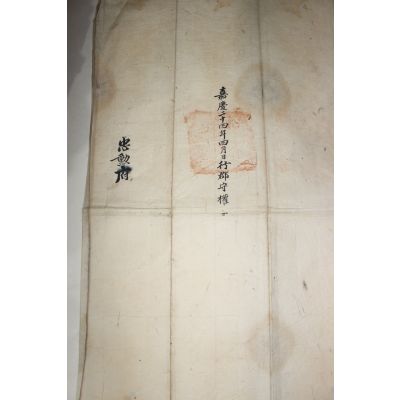 嘉慶二十四年四月日行郡守權
忠勳府